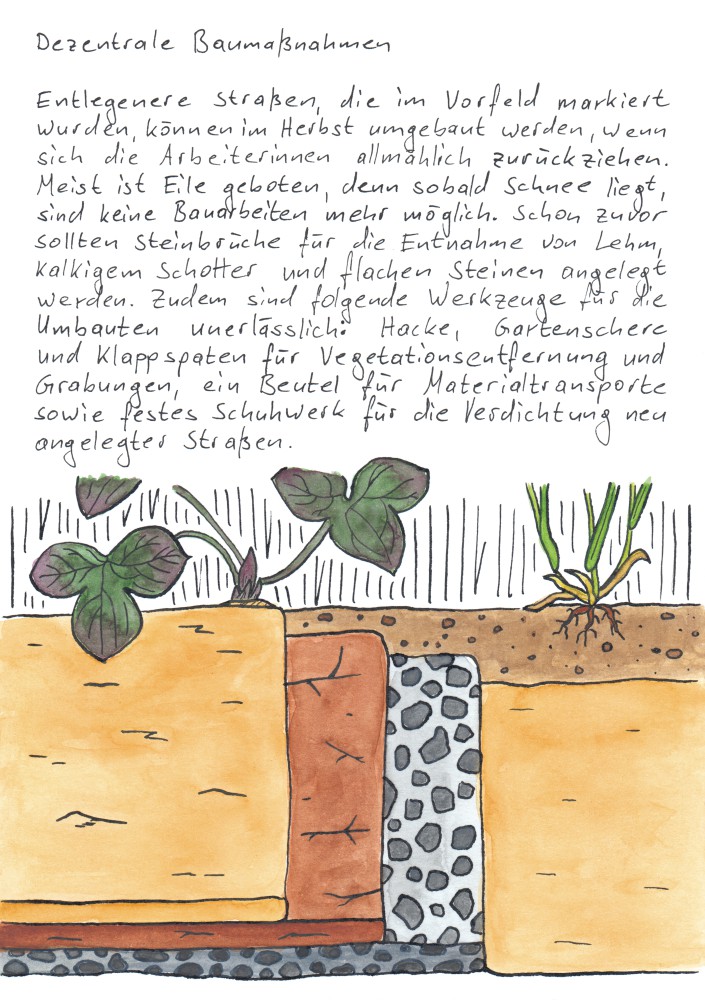 Dezentrale Baumaßnahmen
Entlegenere Straßen, die im Vorfeld markiert
wurden, können im Herbst umgebaut werden, wenn
sich die Arbeiterinnen allmählich zurückziehen.
Meist ist Eile geboten, denn sobald Schnee liegt,
sind keine Bauarbeiten mehr möglich. Schon zuvor
sollten Steinbrüche für die Entnahme von Lehm,
kalkigem Schotter und flachen Steinen angelegt
werden. Zudem sind folgende Werkzeuge für die
Umbauten unerlässlich: Hacke, Gartenschere
und Klappspaten für Vegetationsentfernung und
Grabungen, ein Beutel für Materialtransporte
sowie festes Schuhwerk für die Verdichtung neu
angelegter Straßen.